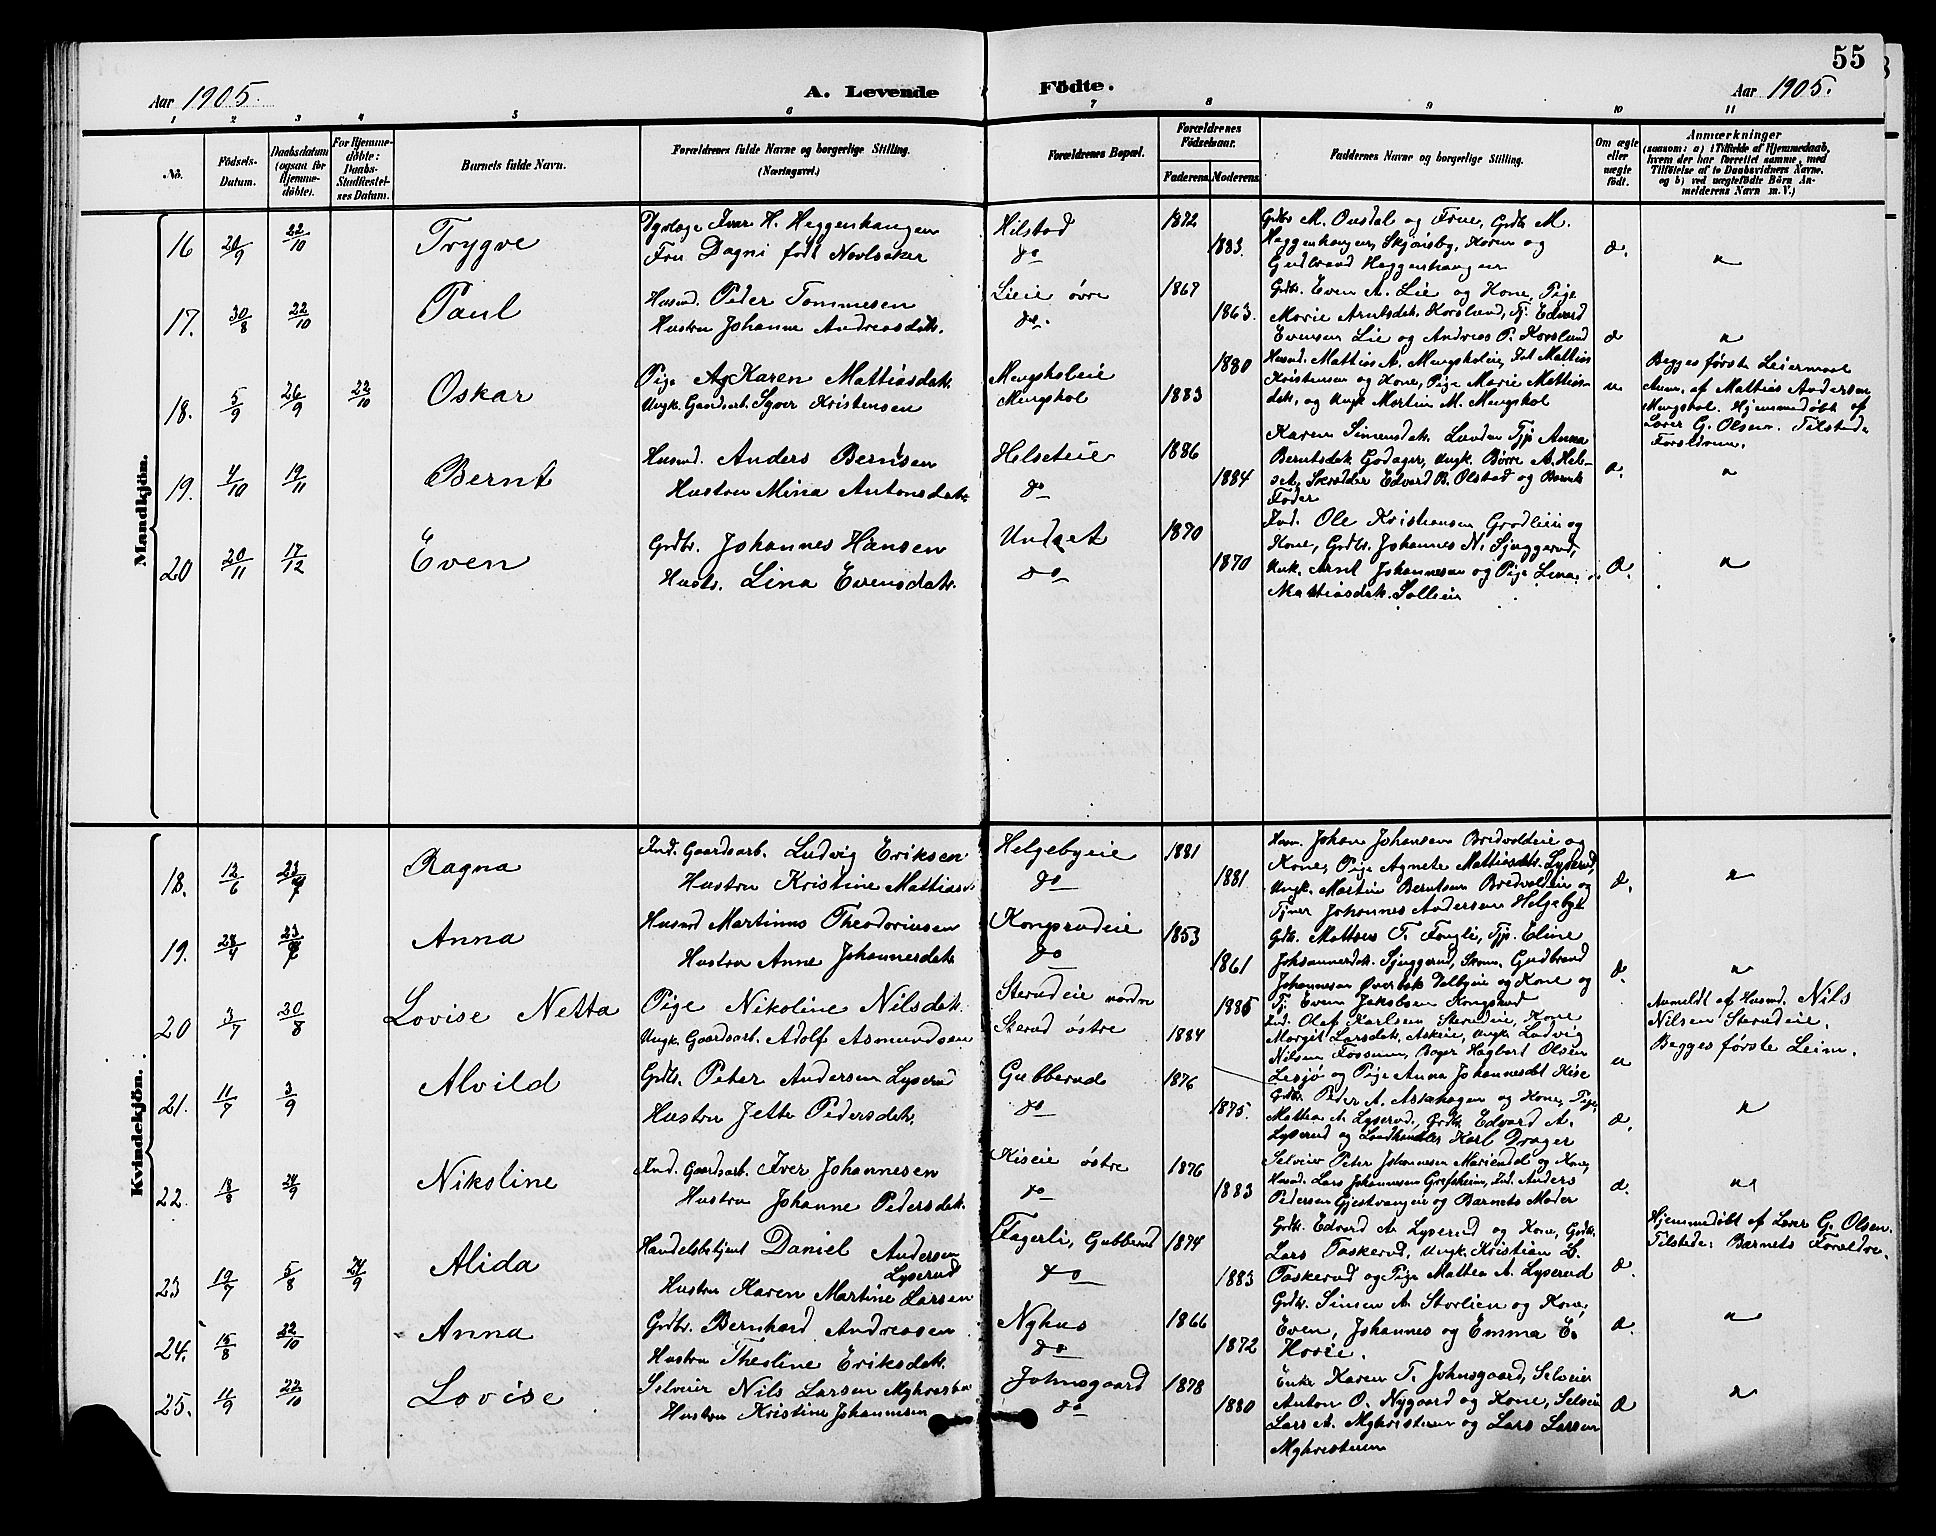 55
Aar 1905. A. Levende Födte. Aar 1905.
1 2 3 4 5 6 7 8 9 10 11
No.
Födsels-Datum.
Daabsdatum (ogsaa för Hjemme-döbte).
For Hjemme-döbte: Daabs-Stadfæstel-ses Datum.
Barnets fulde Navn.
Forældrenes fulde Navne og borgerlige Stilling.
(Næringsvei.)
Forældrenes Bopæl.
Forældrenes Födselsaar.
Faderens. Moderens.
Faddernes Navne og borgerlige Stilling.
Om ægte eller uægte født.
Anmærkninger
(saasom: a) i Tilfælde af Hjemmedaab,
hvem der har forrettet samme, med
Tilföielse af to Daabsvidners Navne,
og b) ved uægtefödte Börn An-
melderens Navn m. V.)
Mandkjön.
16 20/9 22/10 Trygve
Iver H. Heggenhaugen
Fru Dagni født
Hilstad
do
1872
1883.
Grdbr M. Onsdal og Frue, Grdb. M.
Heggenhaugen, Skjønsby, Karen og
Gudbrand Heggenhaugen
æ.
"
17. 30/8 22/10 Paul
Husmd. Peder Tommesen
Hustru Johanne Andreasdatr.
Lieie øvre
do.
1867
1863.
Grdb. Even A. Lie og Kone, Pige
Marie Arntsdatr. Korslund, Tj. Edvard
Evensen Lie og Andreas P. Korslund
æ
"
18. 5/9 26/9 22/10 Oskar
Pige Karen Mattiasdatr.
Ungk. Gaardsarb. Syver Kristensen
Mengsholeie
Mengshol
1880
1883
Husmd. Mattias A. Mengsholeie, Ind. Mattias
Kristensen og Kone, Pige Marie Mattias-
datr. og Ungk. Martin M. Mengshol
u
Begges første Leiermaal
Anm. af Mattias Andersen
Mengshol. Hjemmedøbt af
Lærer G. Olsen. Tilstede
Forældrene.
19. 4/10 19/11 Bernt
Husmd. Anders Berntsen
Hustru Mina Antonsdatr.
Helseteie
do
1886
1884
Karen Simensdatr. Tjp Anna
Berntsdatr. Godager, Ungk. Børre A. Hel-
set, Skrædder Edvard B. Olstad og Barnets
Fader
æ.
"
20 20/11 17/12 Even
Grdbr. Johannes Hansen
Hustr. Lina Evensdatr.
Undset
do
1870
1870
Ind. Ole Kristiansen og
Kone, Grdbr. Johannes N. Sjuggerud,
Ungk. Arnt Johannesen og Pige Lina
Mattiasdatr. Sollien
æ.
"
Kvindekjön.
18. 12/6 23/7 Ragna
Ind. Gaardsarb. Ludvig Eriksen
Hustru Kristine Mattias
Helgebyeie
do
1881
1881.
Johan Johansen Bredvoldeie og
Kone, Pige Agnete Mattiasdtr. Lyserud,
Ungk. Martin Berntsen Bredvoldeie og
Tjener Johannes Andersen Helgeby
æ.
"
19. 28/4 23/7 Anna
Husmd Martinus Theodoriusen
Hustru Anne Johannesdatr.
Kongsrudeie
do
1853
1861
Grdb. Mattæus T. Fougli, Tjp. Eline
Johannesdatr. Sjuggerud, Gudbrand
Johannesen Øverbak og Kone og
Tj Even Jakobsen Kongsrud
æ
"
20 3/7 20/8 Lovise Netta
Pige Nikoline Nilsdatr.
Ungk. Gaardsarb. Adolf Asmundsen
Sterudeie nordre
Sterud østre
1885
1884
Ind. Olaf Karlsen Sterudeie, Kone
Margit Larsdatr. Askeie, Ungk. Ludvig
Nilsen Fossum, Bager Hagbart Olsen
Lesjø og Pige Anna Johannesdt Kise
u
Anmeldt af Husmd. Nils
Nilsen Sterudeie.
Begges første Leierm.
21. 11/7 3/9 Alvild
Grdb. Peter Andersen Lyserud
Hustru Jette Pedersdatr.
Gubberud
do
1876
1875.
Grdbr Peder A. Askehagen og Kone, Pige
Mattea A. Lyserud, Grdb. Edvard A.
Lyserud og Landhandler Karl Drager
æ.
"
22. 18/8 24/9 Nikoline
Ind. Gaardsarb. Iver Johannesen
Hustru Johanne Pedersdatr.
Kiseie østre
do
1876
1883
Selveier Peter Johannesen Mariendal og Kone,
Husmd. Lars Johannesen Grefsheim, Ind. Anders
Pedersen Gjestvangeie og Barnets Moder
æ.
"
23 19/7 5/8 24/9 Alida
Handelsbetjent Daniel Andersen
Lyserud
Hustru Karen Martine Larsen
Fagerli, Gubberud
do
1874
1883
Grdb. Edvard A. Lyserud og Kone, Grdb.
Lars Taskerud, Ungk. Kristian L.
Taskerud og Pige Mattea A. Lyserud
æ.
Hjemmedøbt af Lærer G. Olsen.
Tilstede: Barnets Forældre.
24. 15/8 22/10 Anna
Grdbr. Bernhard Andreasen
Hustru Thesline Eriksdatr.
Nyhus
do
1866
1872
Grdb. Simen A. Storlien og Kone,
Even, Johannes og Emma E.
Hovie.
æ.
"
25. 11/9 22/10 Lovise
Selveier Nils Larsen
Hustru Kristine Johannesen
Johnsgaard
do
1878
1880
Enke Karen T. Johnsgaard, Selveier
Anton O. Nygaard og Kone, Selveier
Lars A. og Lars Larsen
æ
"